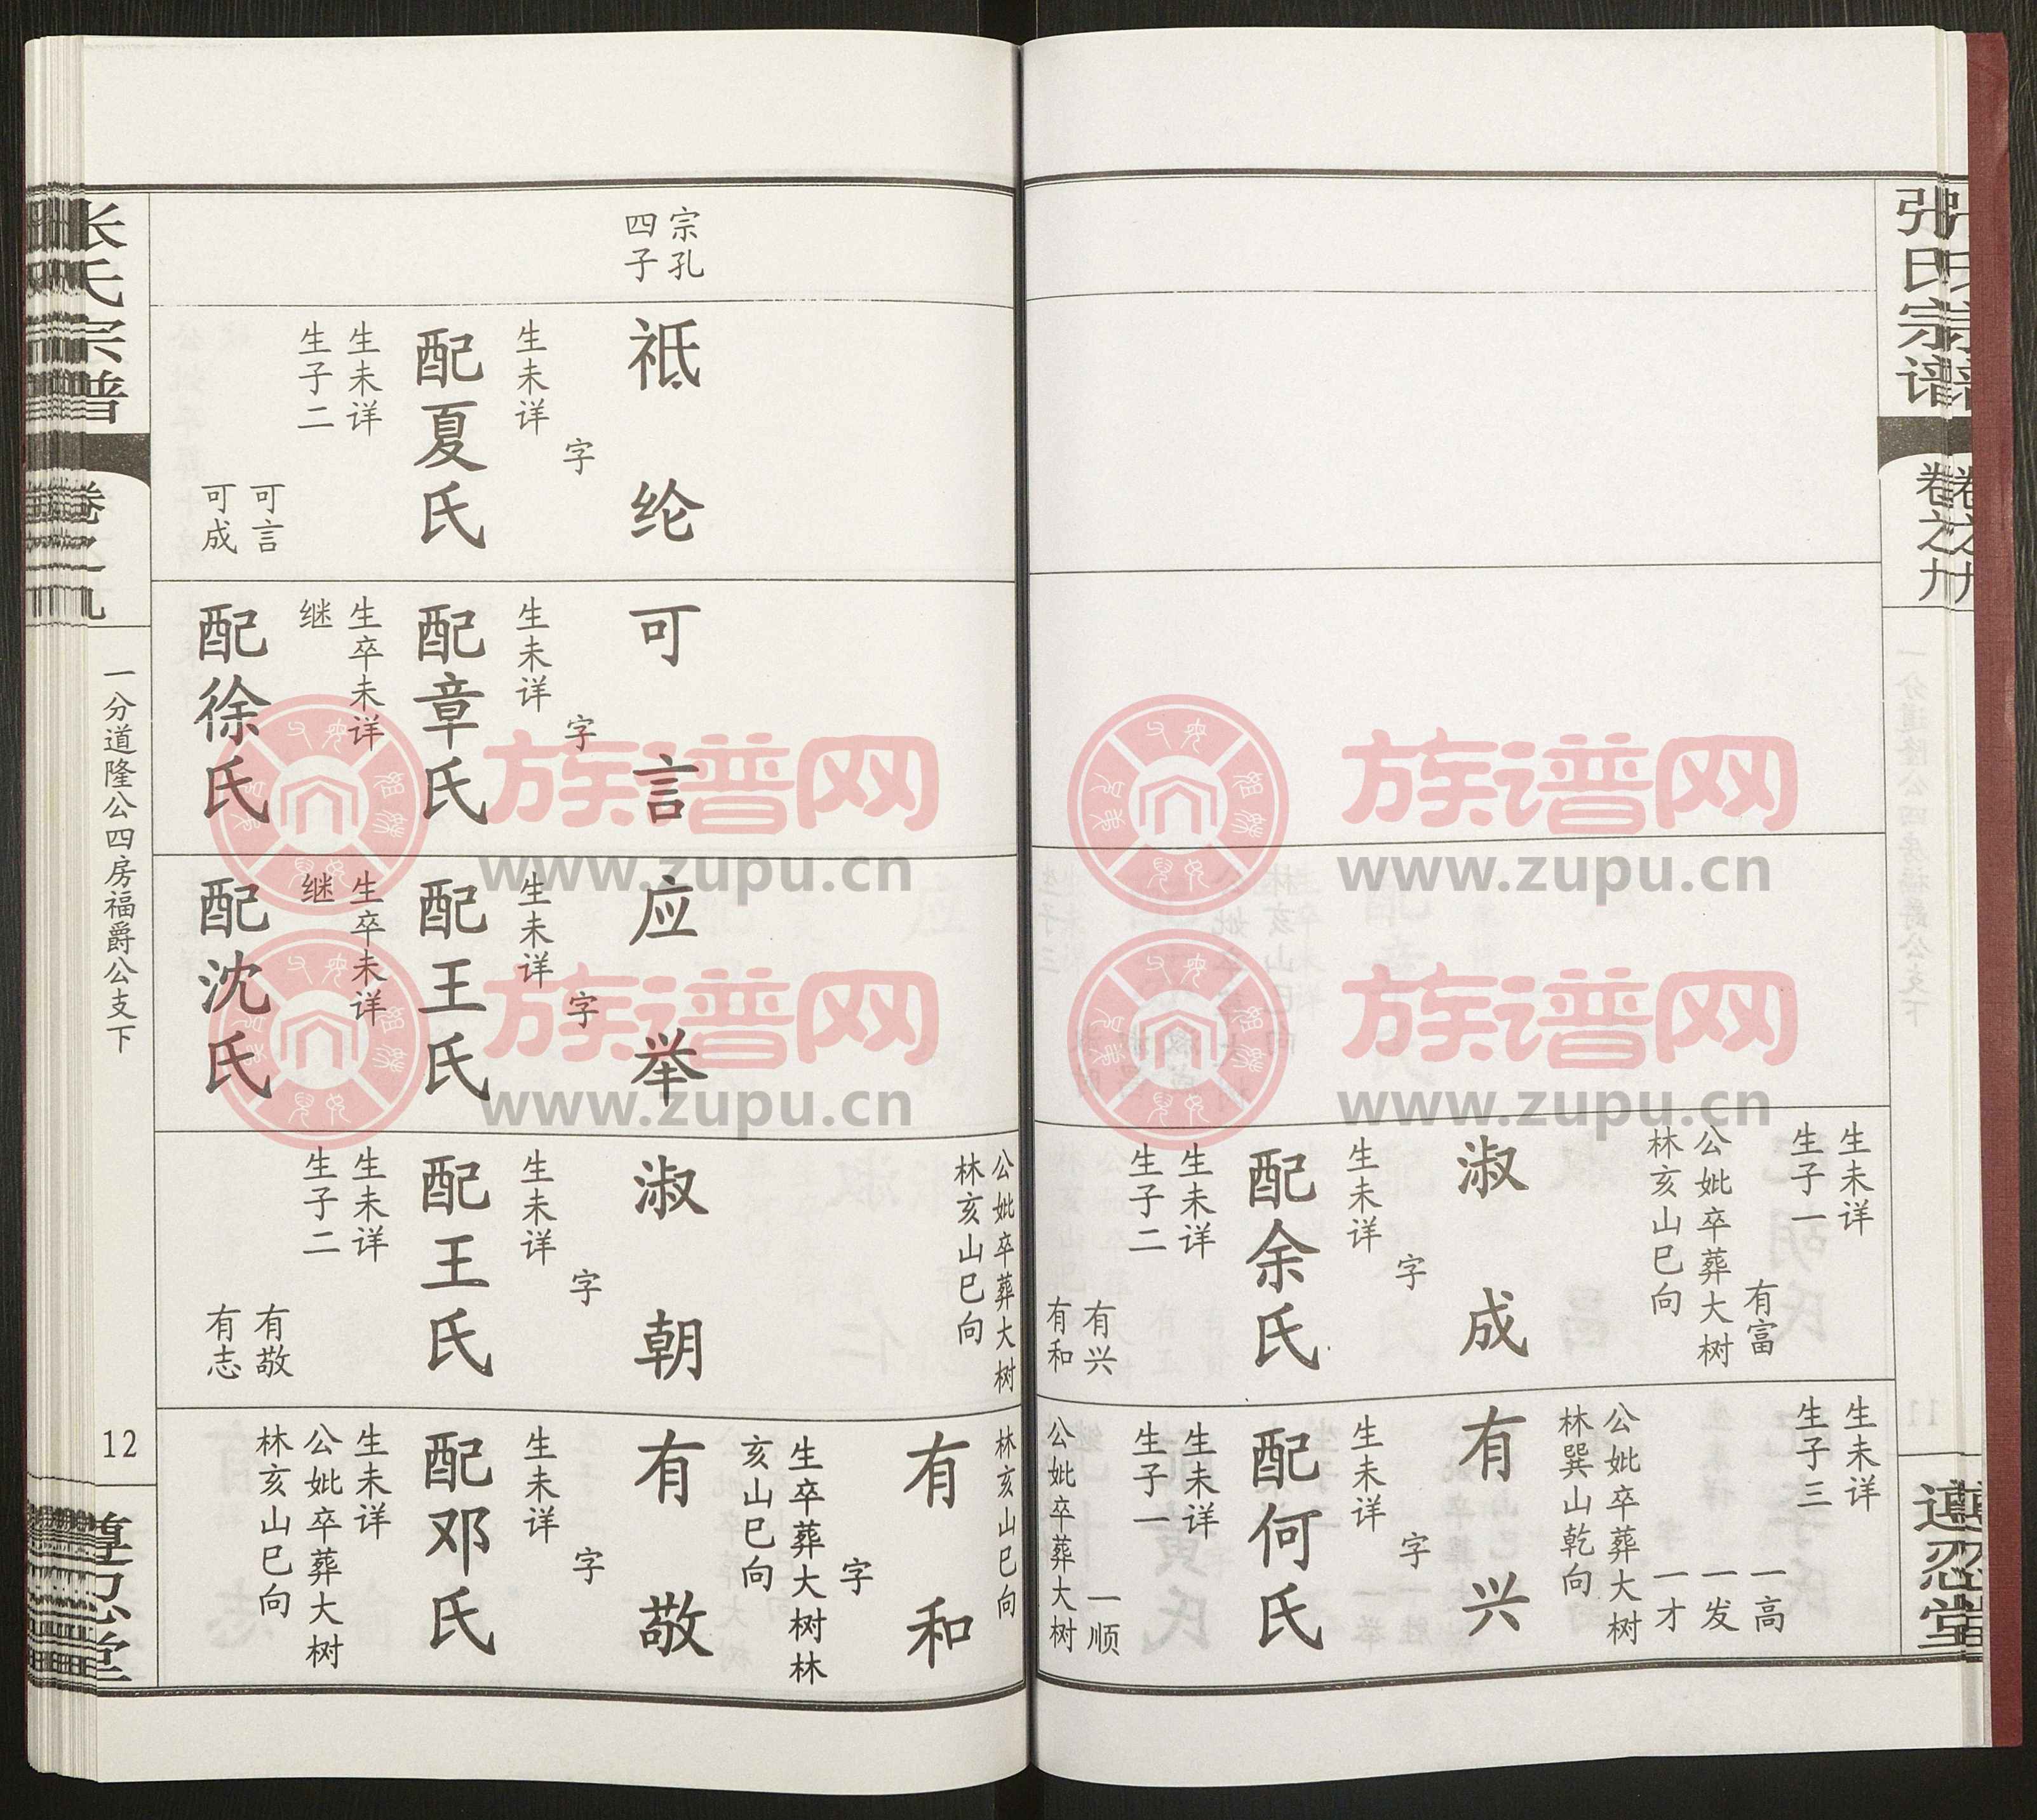 张氏宗谱
卷之九
遵忍堂
生未详
生子一
有富
公妣卒葬大树
林亥山巳向
淑成
字
生未详
配余氏
生未详
生子二
有兴
有和
生未详
生子三
一高
一发
一才
公妣卒葬大树
林巽山乾向
有兴
字
生未详
配何氏
生未详
生子一
一顺
公妣卒葬大树
宗孔
四子
祗纶
字
生未详
配夏氏
生未详
生子二
可言
可成
可言
字
生未详
配章氏
生卒未详
继
配徐氏
应举
字
生未详
配王氏
生卒未详
继
配沈氏
公妣卒葬大树
林亥山巳向
淑朝
字
生未详
配王氏
生未详
生子二
有敬
有志
林亥山巳向
有和
字
生卒葬大树林
亥山巳向
有敬
字
生未详
配邓氏
生未详
公妣卒葬大树
林亥山巳向
张氏宗谱
卷之九
一分道隆公四房福爵公支下
12
遵忍堂
族谱网
www.zupu.cn
族谱网
www.zupu.cn
族谱网
www.zupu.cn
族谱网
www.zupu.cn